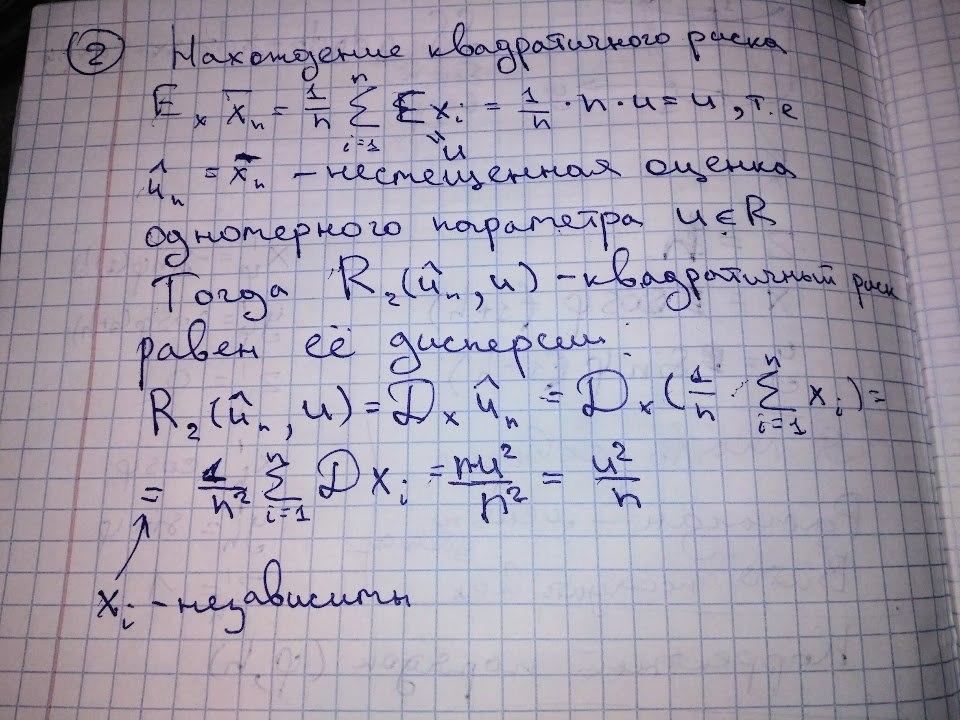 ② Нахождение квадратичного риска
E_x x̄_n = 1/n ∑_{i=1}^{n} E x_i = 1/n · n · u = u, т.е
"u
û_n = x̄_n – несмещенная оценка
одномерного параметра u ∈ R
Тогда R_2(û_n, u) – квадратичный риск
равен её дисперсии:
R_2(û_n, u) = D_x û_n = D_x (1/n · ∑_{i=1}^{n} x_i) =
= 1/n² ∑_{i=1}^{n} D x_i = nu²/n² = u²/n
x_i – независимы